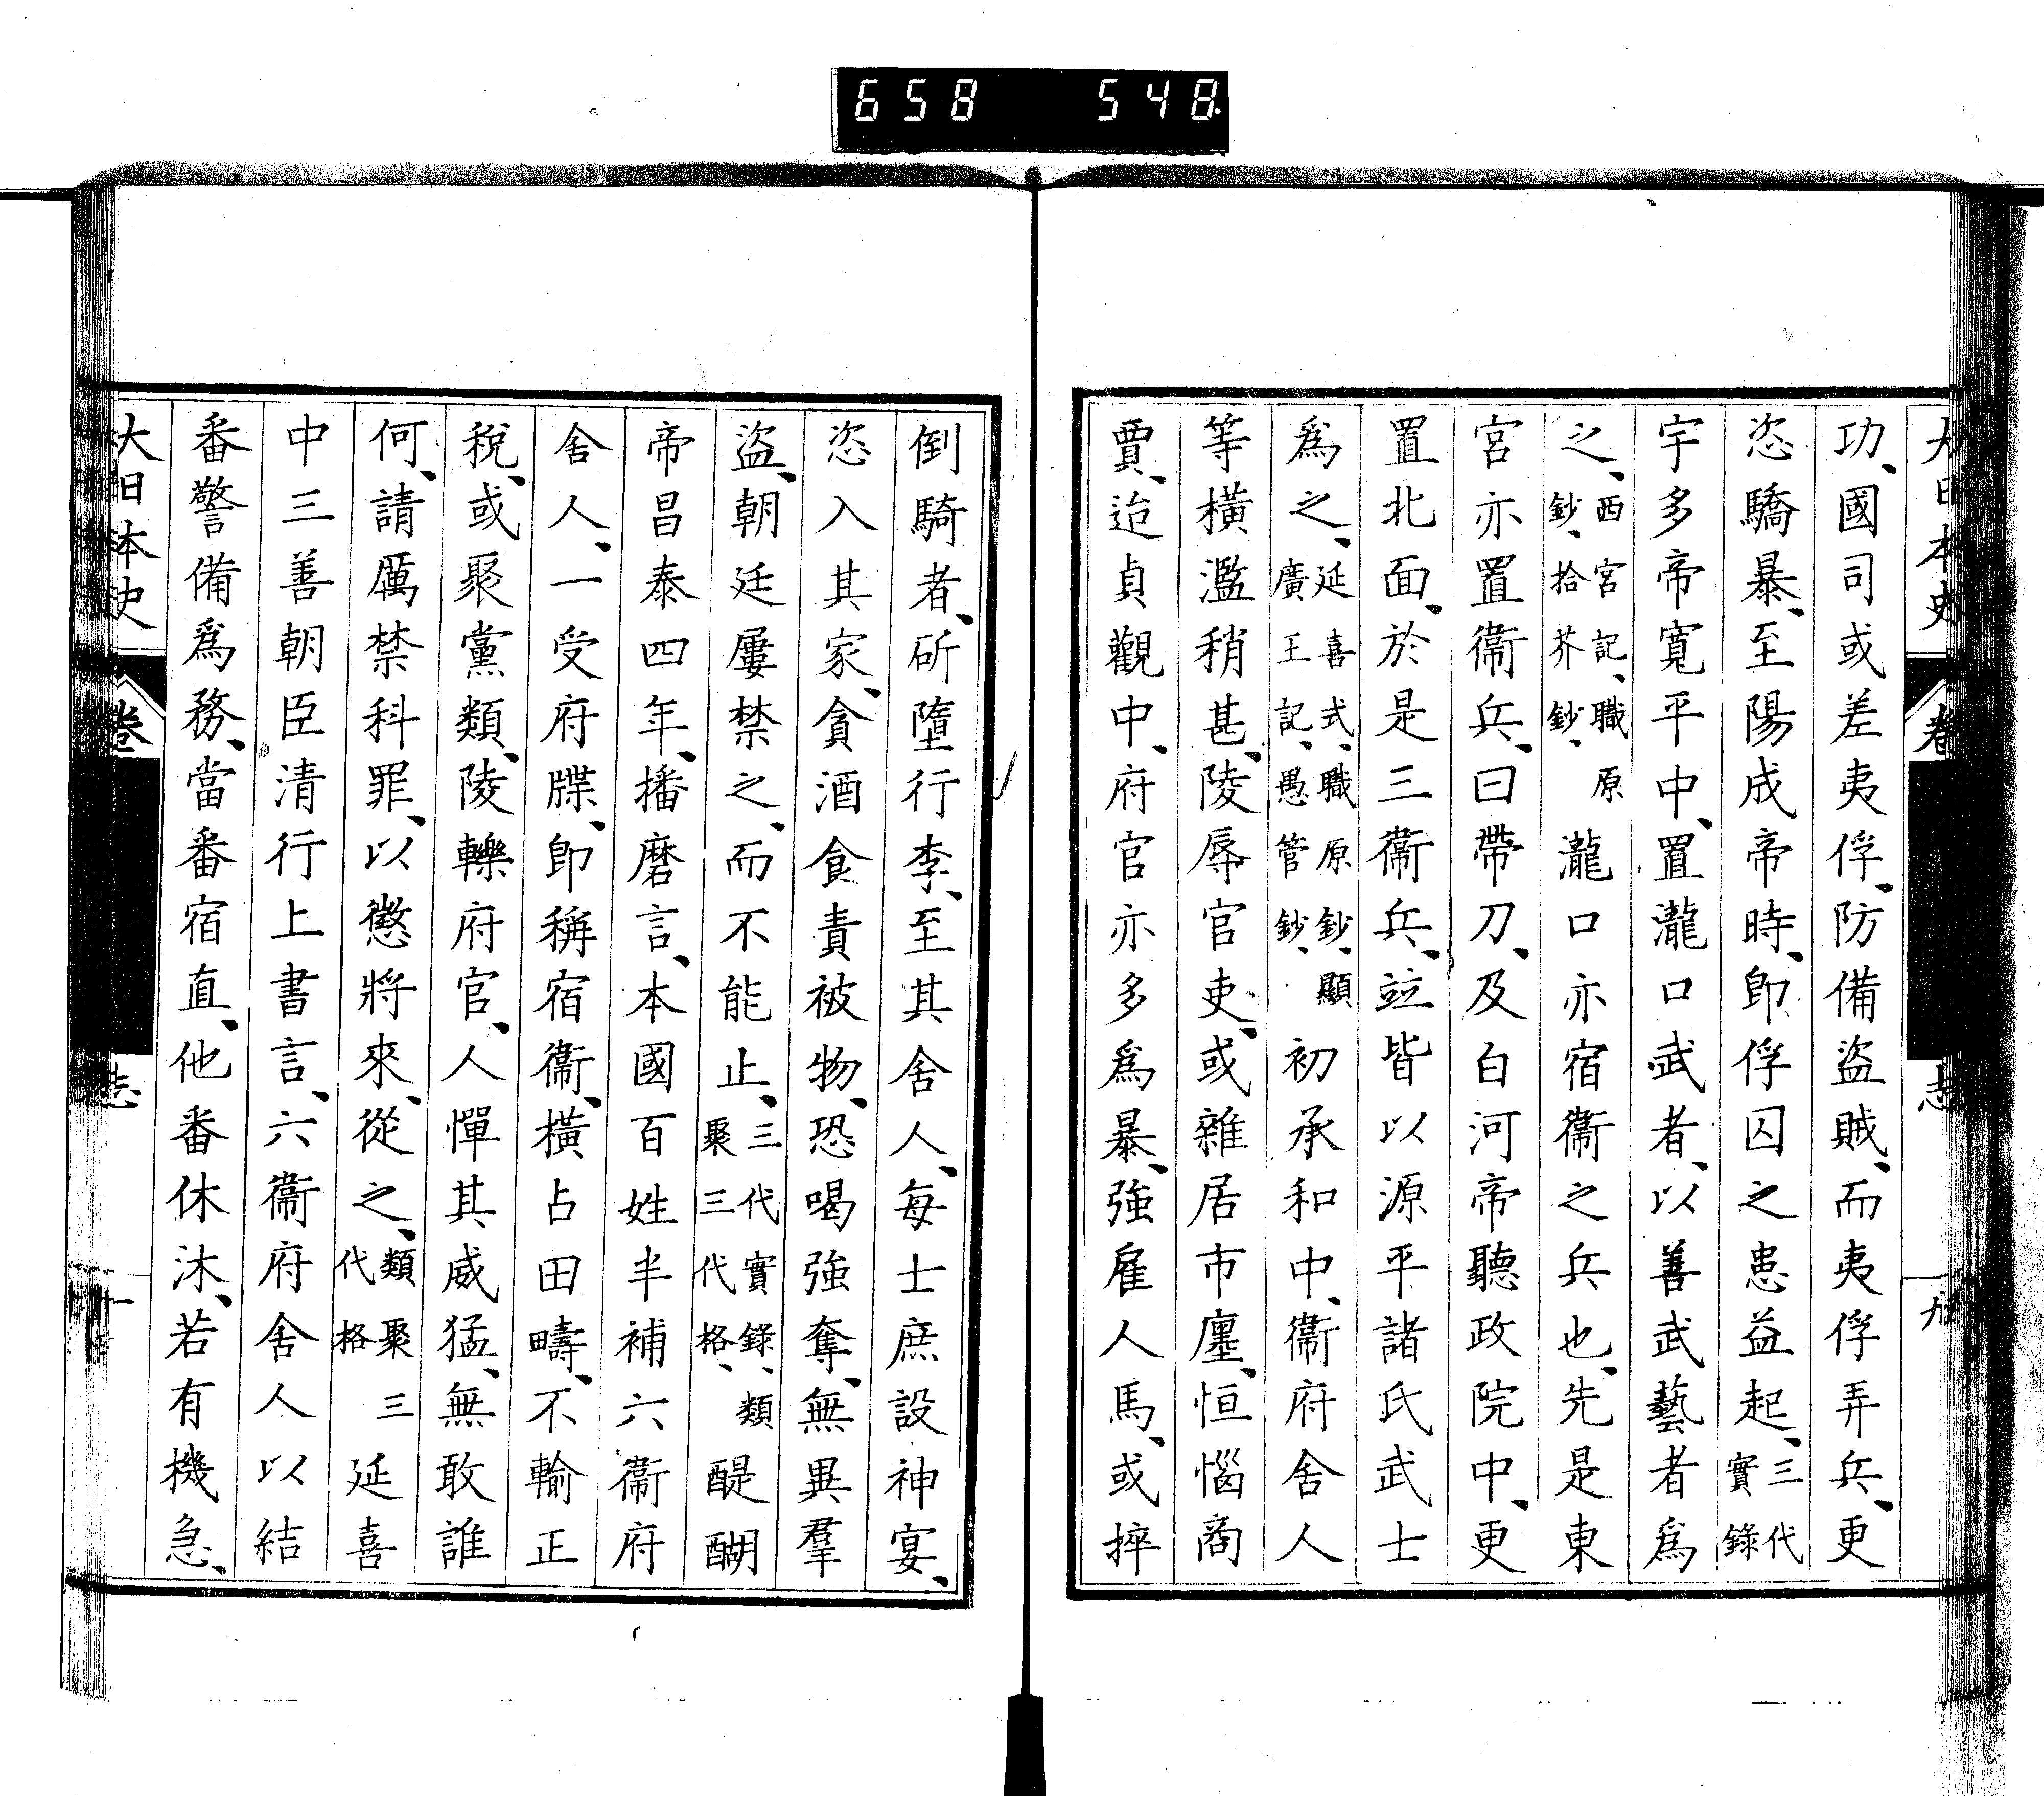 658 548
大日本史 卷 志 九
功、國司或差夷俘、防備盜賊、而夷俘弄兵、更
恣驕暴、至陽成帝時、卽俘囚之患益起、三代實錄
宇多帝寬平中、置瀧口武者、以善武藝者爲
之、西宮記、職原鈔、拾芥鈔、瀧口亦宿衞之兵也、先是東
宮亦置衞兵、曰帶刀、及白河帝聽政院中、更
置北面、於是三衞兵、竝皆以源平諸氏武士
爲之、延喜式、職原鈔、顯廣王記、愚管鈔、初承和中、衞府舍人
等橫濫稍甚、陵辱官吏、或雜居市廛、恒惱商
賈、迨貞觀中、府官亦多爲暴、強雇人馬、或捽
倒騎者、斫墮行李、至其舍人、每士庶設神宴、
恣入其家、貪酒食責被物、恐喝強奪、無異羣
盜、朝廷屢禁之、而不能止、三代實錄、類聚三代格、醍醐
帝昌泰四年、播磨言、本國百姓半補六衞府
舍人、一受府牒、卽稱宿衞、橫占田疇、不輸正
稅、或聚黨類、陵轢府官、人憚其威猛、無敢誰
何、請厲禁科罪、以懲將來、從之、類聚三代格延喜
中三善朝臣清行上書言、六衞府舍人以結
番警備爲務、當番宿直、他番休沐、若有機急、
大日本史 卷 志